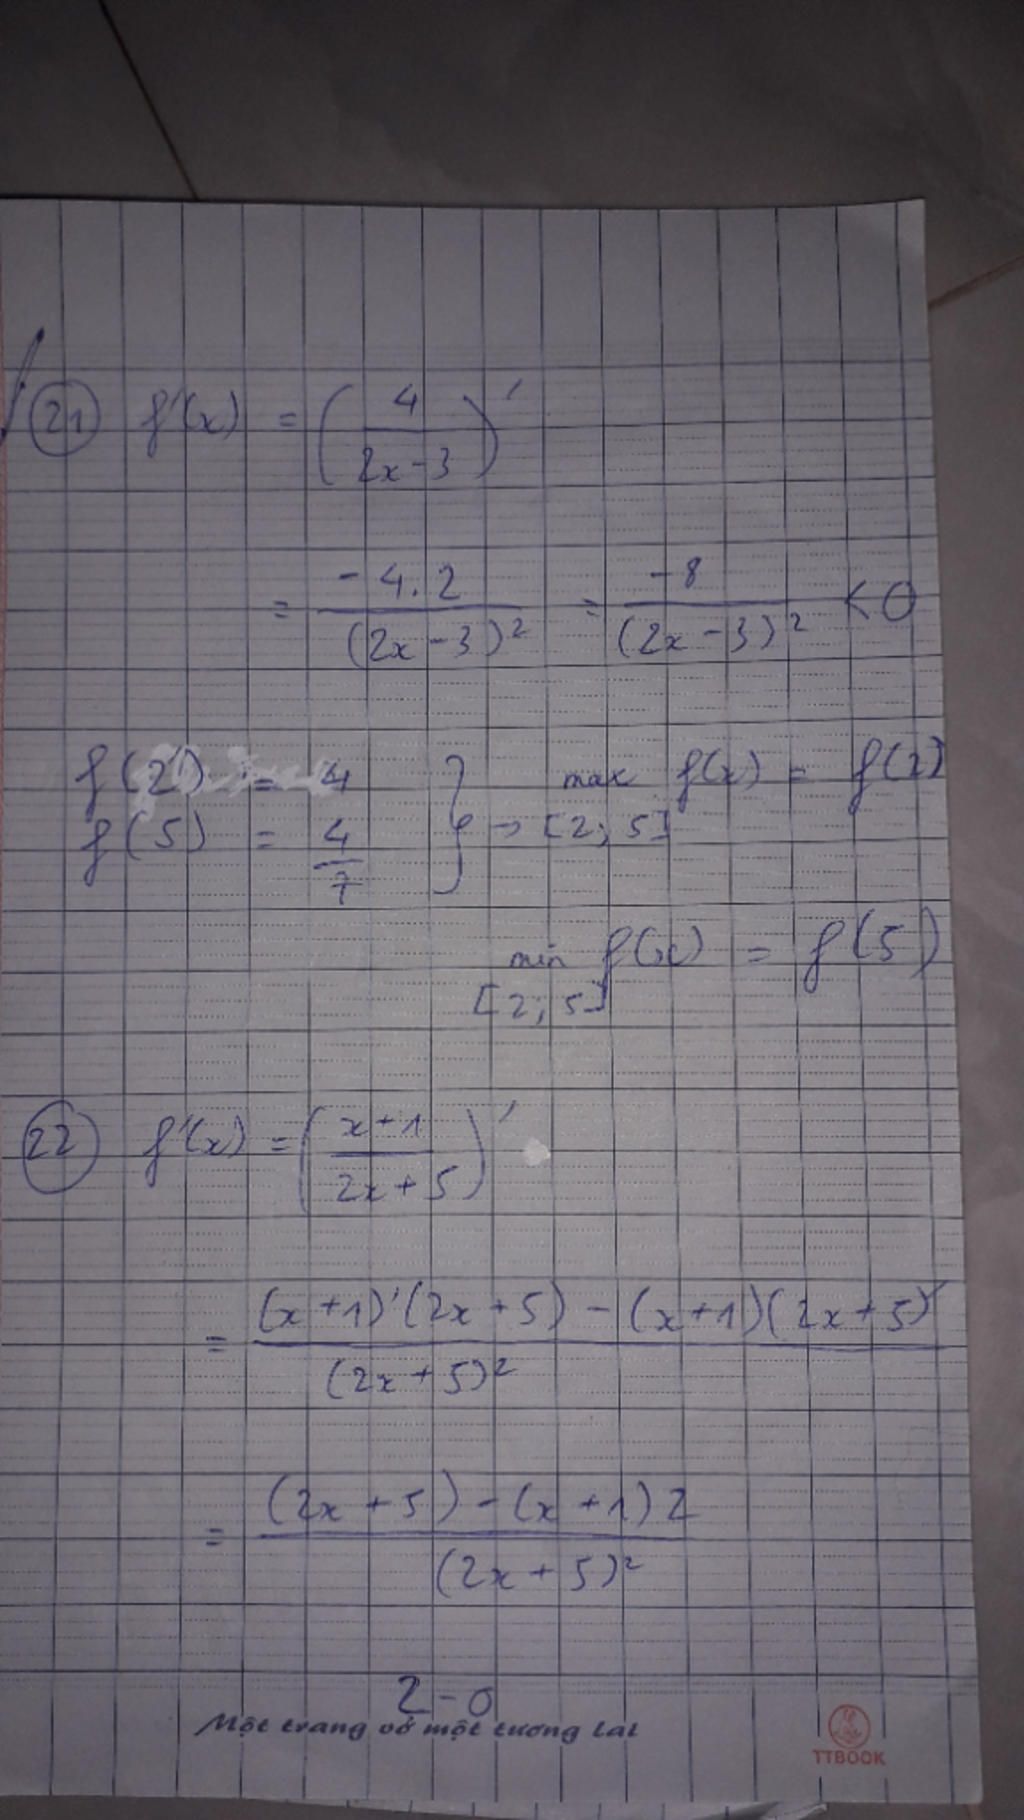 21 f'(x) = (4/(2x-3))'
= (-4.2)/((2x-3)²) = (-8)/((2x-3)²) < 0
f(2) = 4 } max f(x) = f(2)
f(5) = 4/7 → [2; 5]
min f(x) = f(5)
[2; 5]
22 f'(x) = ((x+1)/(2x+5))'
= ((x+1)'(2x+5) - (x+1)(2x+5)')/((2x+5)²)
= ((2x+5) - (x+1)2)/((2x+5)²)
2-0
Một trang vở một tương lai
TTBOOK